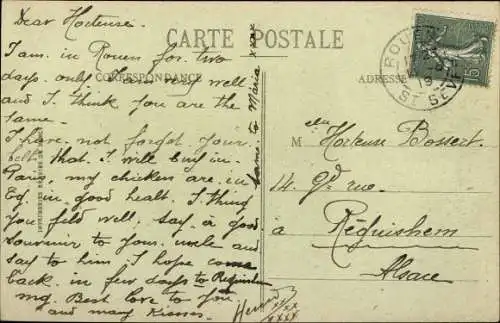 Dear Hortense.
CARTE POSTALE
I am. in Rouen for. two
days. only I am very well
CORRESPONDANCE
ADRESSE
and. I think you are the
same.
I have. not forgot your.
belt that. I. will buy in.
Paris. my chicken are. in
in good healt. I thing
you feld well. say. a good
souvenir to your. uncle and
say to him. I hope come
back. in few days to Réguishem
my. Best love to you
and many Kisses.
same. to Maria xxxx
xx
xxxx
M elle Hortense Bossert.
14. Gde rue.
à Réguishem
Alsace
ROUEN
ST SEVER
15